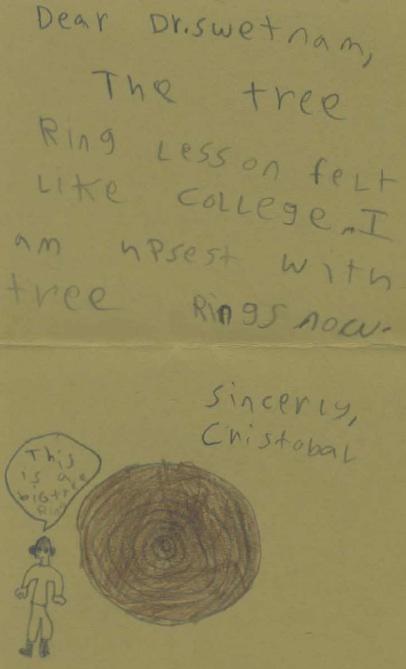 Dear Dr.swetnam,
The tree
Ring Lesson felt
Like College. I
am upsest with
tree Rings now.
sincerly,
Cristobal
This
is a
big tree
Ring